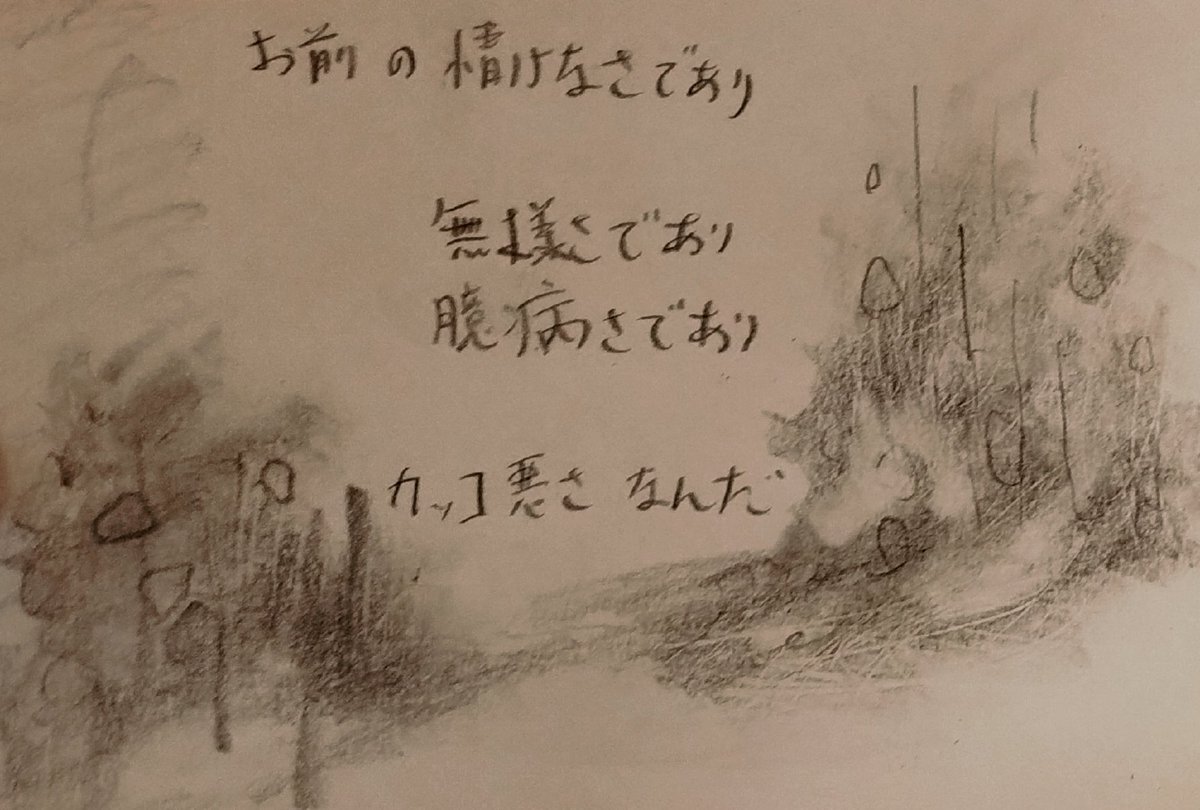 お前の情けなさであり
無様さであり
臆病さであり
カッコ悪さなんだ